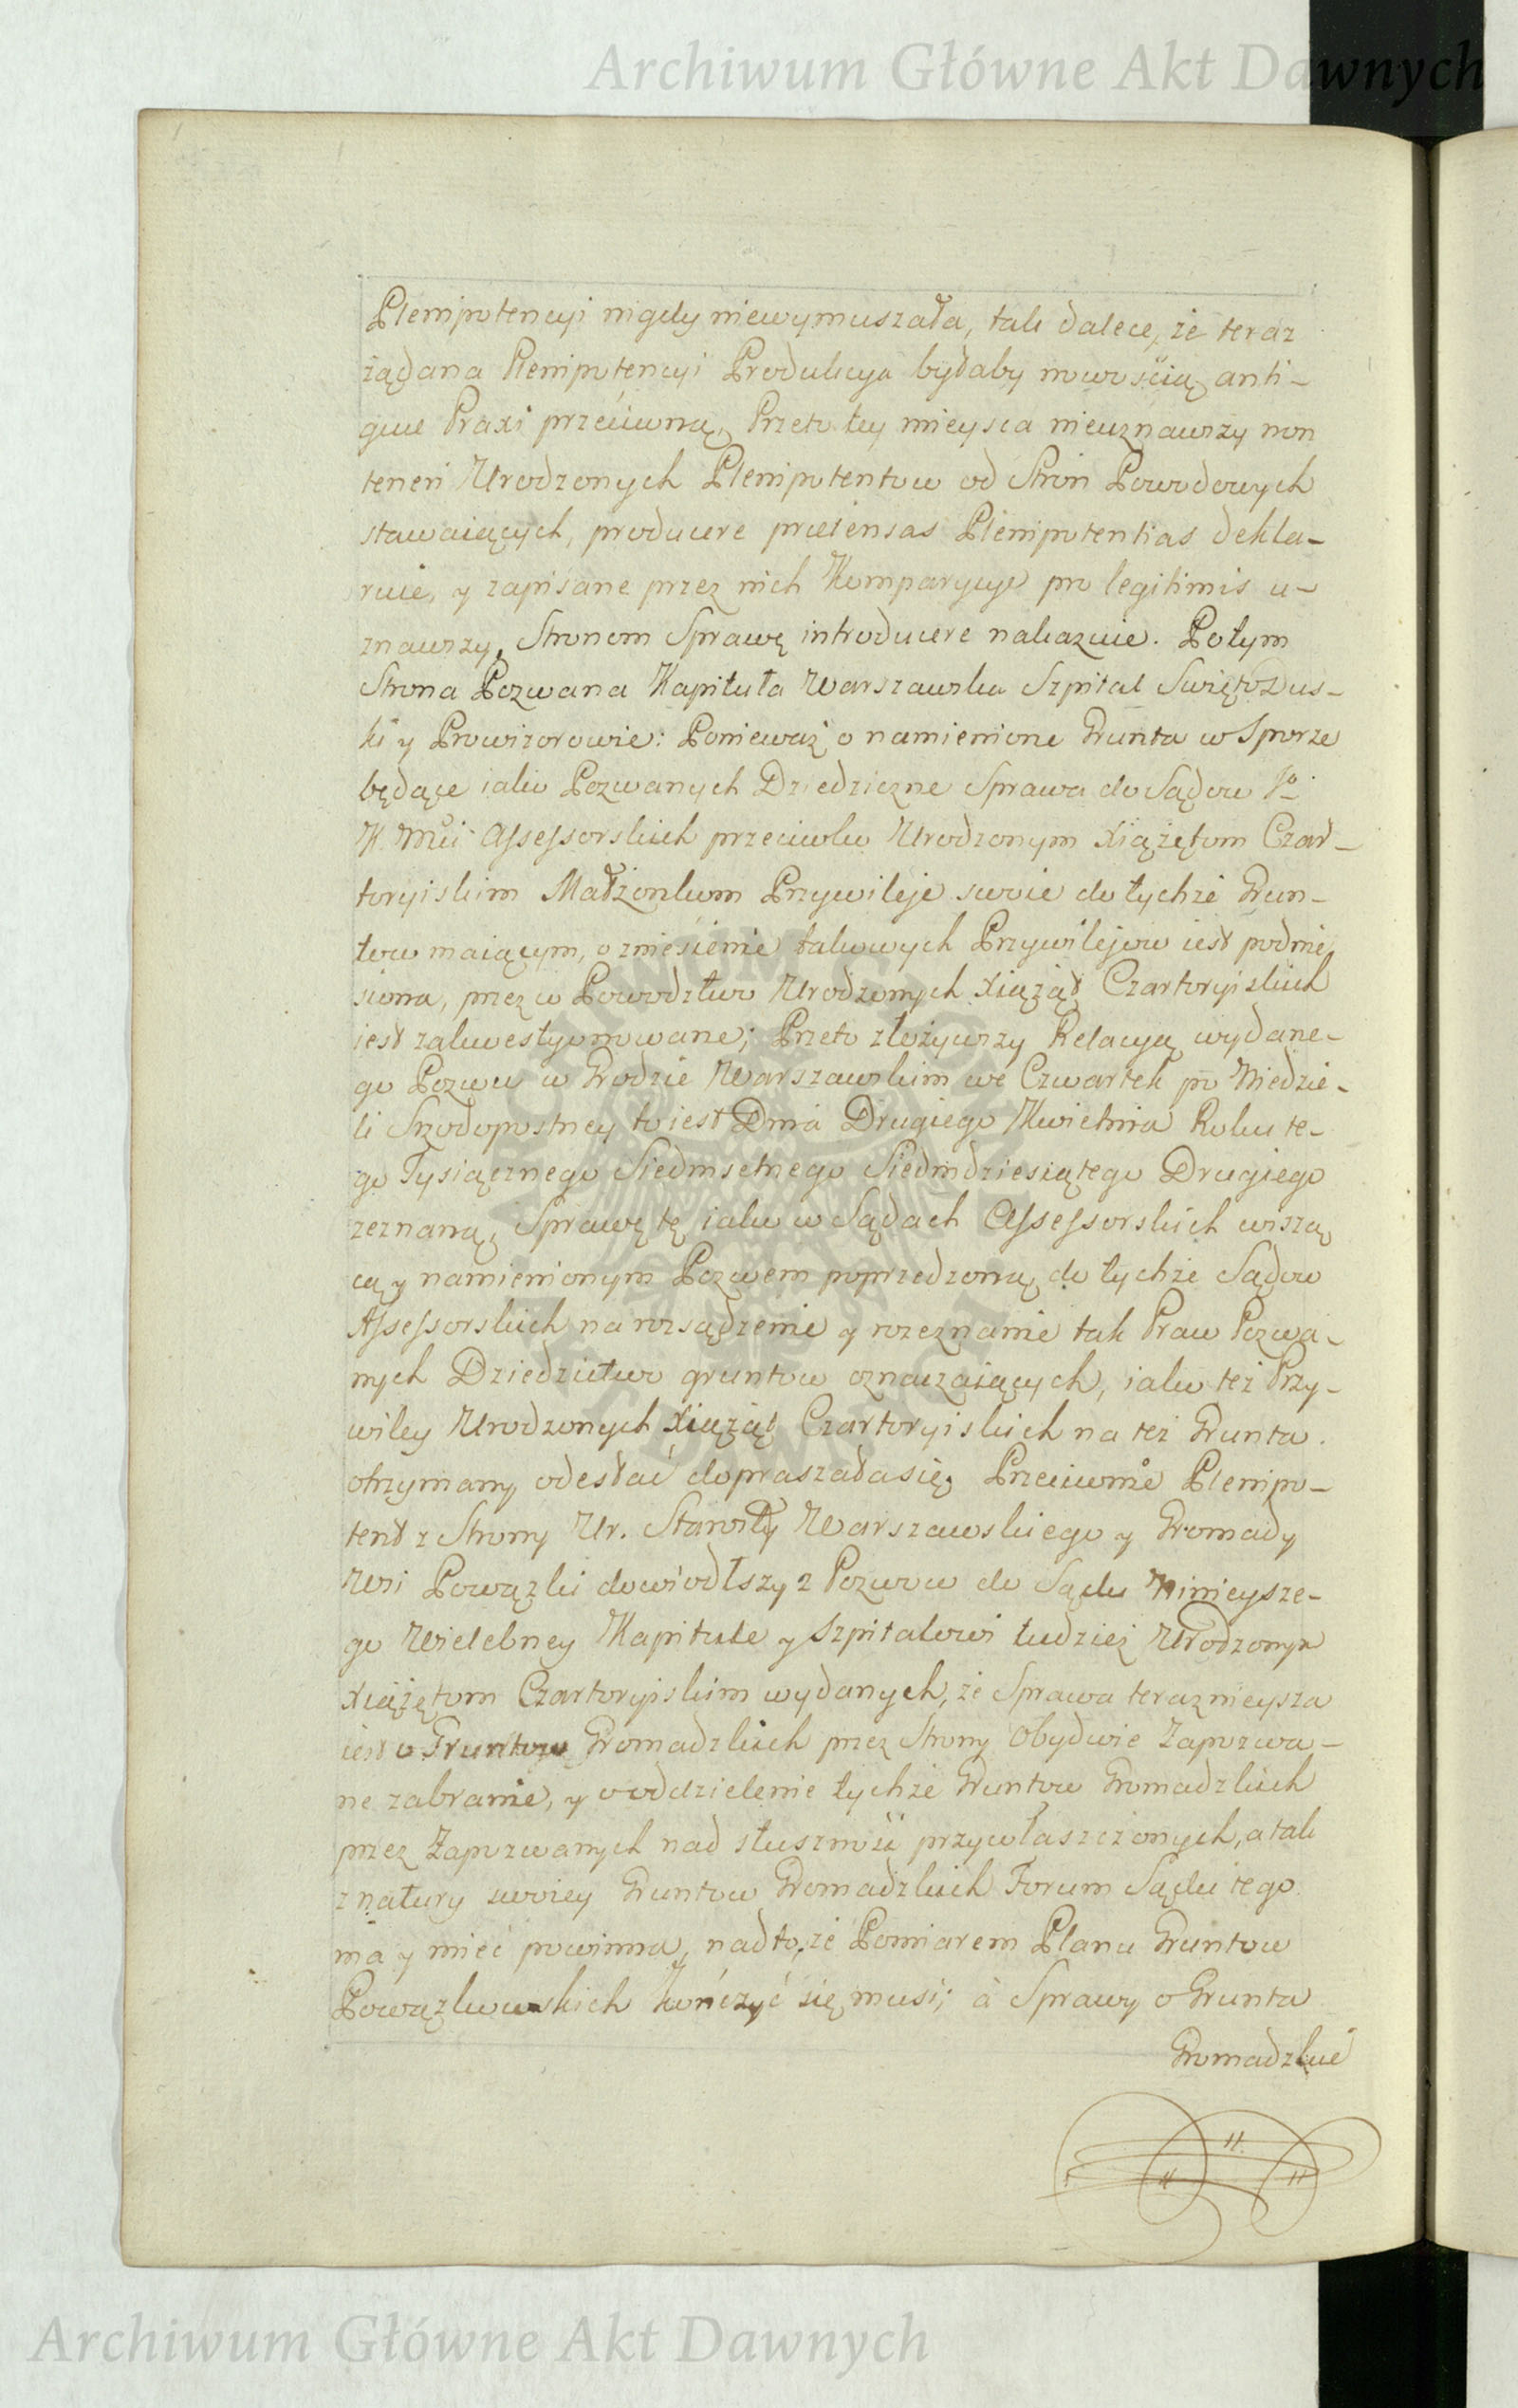 Archiwum Główne Akt Dawnych
Plenipotencyi nigdy niewymuszała, tak dalece, że teraz
żądana Plenipotencyi Produkcya byłaby nowością anti-
quae Praxi przeciwną, Przeto tey mieysca nieuznawszy non
teneri Urodzonych Plenipotentow od Stron Powodowych
stawaiących, producere praetensas Plenipotentias dekla-
ruie, y zapisane przez nich Komparycye pro legitimis u-
znawszy, Stronom Sprawę introducere nakazuie. Potym
Strona Pozwana Kapituła Warszawska Szpital SwiętoDus-
ki y Prowizorowie: Ponieważ o namienione Grunta w Sporze
będące iako Pozwanych Dziedziczne Sprawa do Sądow Jo
K. Mci Assessorskich przeciwko Urodzonym Xiążętom Czar-
toryiskim Małżonkom Przywileje swoie do tychże Grun-
tow maiącym, o zniesienie takowych Przywilejow iest podnie
siona, przez co Powodztwo Urodzonych Xiążąt Czartoryiskich
iest zakwestyonowane; Przeto złożywszy Relacyą wydane-
go Pozwu w Grodzie Warszawskim we Czwartek po Niedzie-
li Srodopostney to iest Dnia Drugiego Kwietnia Roku te-
go Tysiącznego Siedmsetnego Siedmdziesiątego Drugiego
zeznaną, Sprawę tę iako w Sądach Assessorskich wiszą
cą y namienionym Pozwem poprzedzoną do tychże Sądow
Assessorskich na rozsądzenie y rozeznanie tak Praw Pozwa-
nych Dziedzictwo gruntow oznaczaiących, iako też Przy-
wiley Urodzonych Xiążąt Czartoryiskich na też Grunta
otrzymany odesłać dopraszała się, Przeciwnie Plenipo-
tent z Strony Ur. Starosty Warszawskiego y Gromady
Wsi Powązki dowiodłszy z Pozwow do Sądu Ninieysze-
go Wielebney Kapitule y Szpitalowi tudzież Urodzonym
Xiążętom Czartoryiskim wydanych, że Sprawa teraznieysza
iest o Gruntow Gromadzkich przez Strony Obydwie Zapozwa-
ne zabranie, y o oddzielenie tychże Gruntow Gromadzkich
przez Zapozwanych nad słuszność przywłaszczonych, a tak
z natury swoiey Gruntow Gromadzkich Forum Sądu tego
ma y mieć powinna, nadto, że Pomiarem Planu Gruntow
Powązkowskich kończyć się musi; à Sprawy o Grunta
Gromadzkie
Archiwum Główne Akt Dawnych